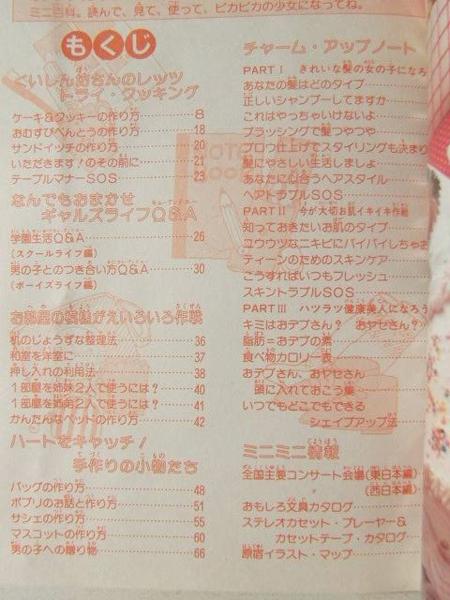 ミニ百科。読んで、見て、使って、ピカピカの少女になってね。
もくじ
くいしん坊さんのレッツ
トライ・クッキング
ケーキ&クッキーの作り方 8
おむすびべんとうの作り方 18
サンドイッチの作り方 20
いただきます!のその前に 21
テーブルマナーSOS 23
なんでもおまかせ
ギャルズライフQ&A
学園生活Q&A 26
(スクールライフ編)
男の子とのつき合い方Q&A 30
(ボーイズライフ編)
お部屋の模様がえいろいろ作戦
机のじょうずな整理法 36
和室を洋室に 37
押し入れの利用法 38
1部屋を姉妹2人で使うには? 40
1部屋を姉弟2人で使うには? 41
かんたんなベットの作り方 42
ハートをキャッチ!
手作りの小物たち
バッグの作り方 48
ポプリのお話と作り方 51
サシェの作り方 55
マスコットの作り方 60
男の子への贈り物 66
チャーム・アップノート
PART I きれいな髪の女の子になろ
あなたの髪はどのタイプ
正しいシャンプーしてますか
これはやっちゃいけないよ
ブラッシングで髪つやつや
ブロウ仕上げでスタイリングも決まり
髪にやさしい生活しましょ
あなたに似合うヘアスタイル
ヘアトラブルSOS
PART II 今が大切お肌イキイキ作戦
知っておきたいお肌のタイプ
ユウウツなニキビにバイバイしちゃお
ティーンのためのスキンケア
こうすればいつもフレッシュ
スキントラブルSOS
PART III ハツラツ健康美人になろう
キミはおデブさん? おヤセさん?
脂肪=おデブの素
食べ物カロリー表
おデブさん、おヤセさん
頭に入れておこう集
いつでもどこでもできる
シェイプアップ法
ミニミニ情報
全国主要コンサート会場(東日本編)
(西日本編)
おもしろ文具カタログ
ステレオカセット・プレーヤー&
カセットテープ・カタログ
原宿イラスト・マップ